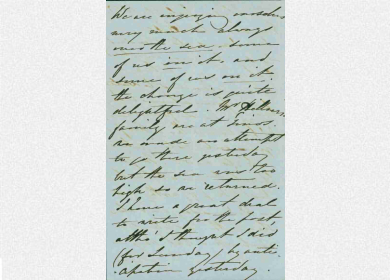 We are enjoying ourselves
very much always
over the sea. some
of us in it, and
some of us on it.
the change is quite
delightful. Mr
family are at
an made an attempt
to go there yesterday
but the sea was too
high so an returned.
I have a great deale
to write for the post
altho' I thought I did
(for Sunday) by anti
cipation yesterday.